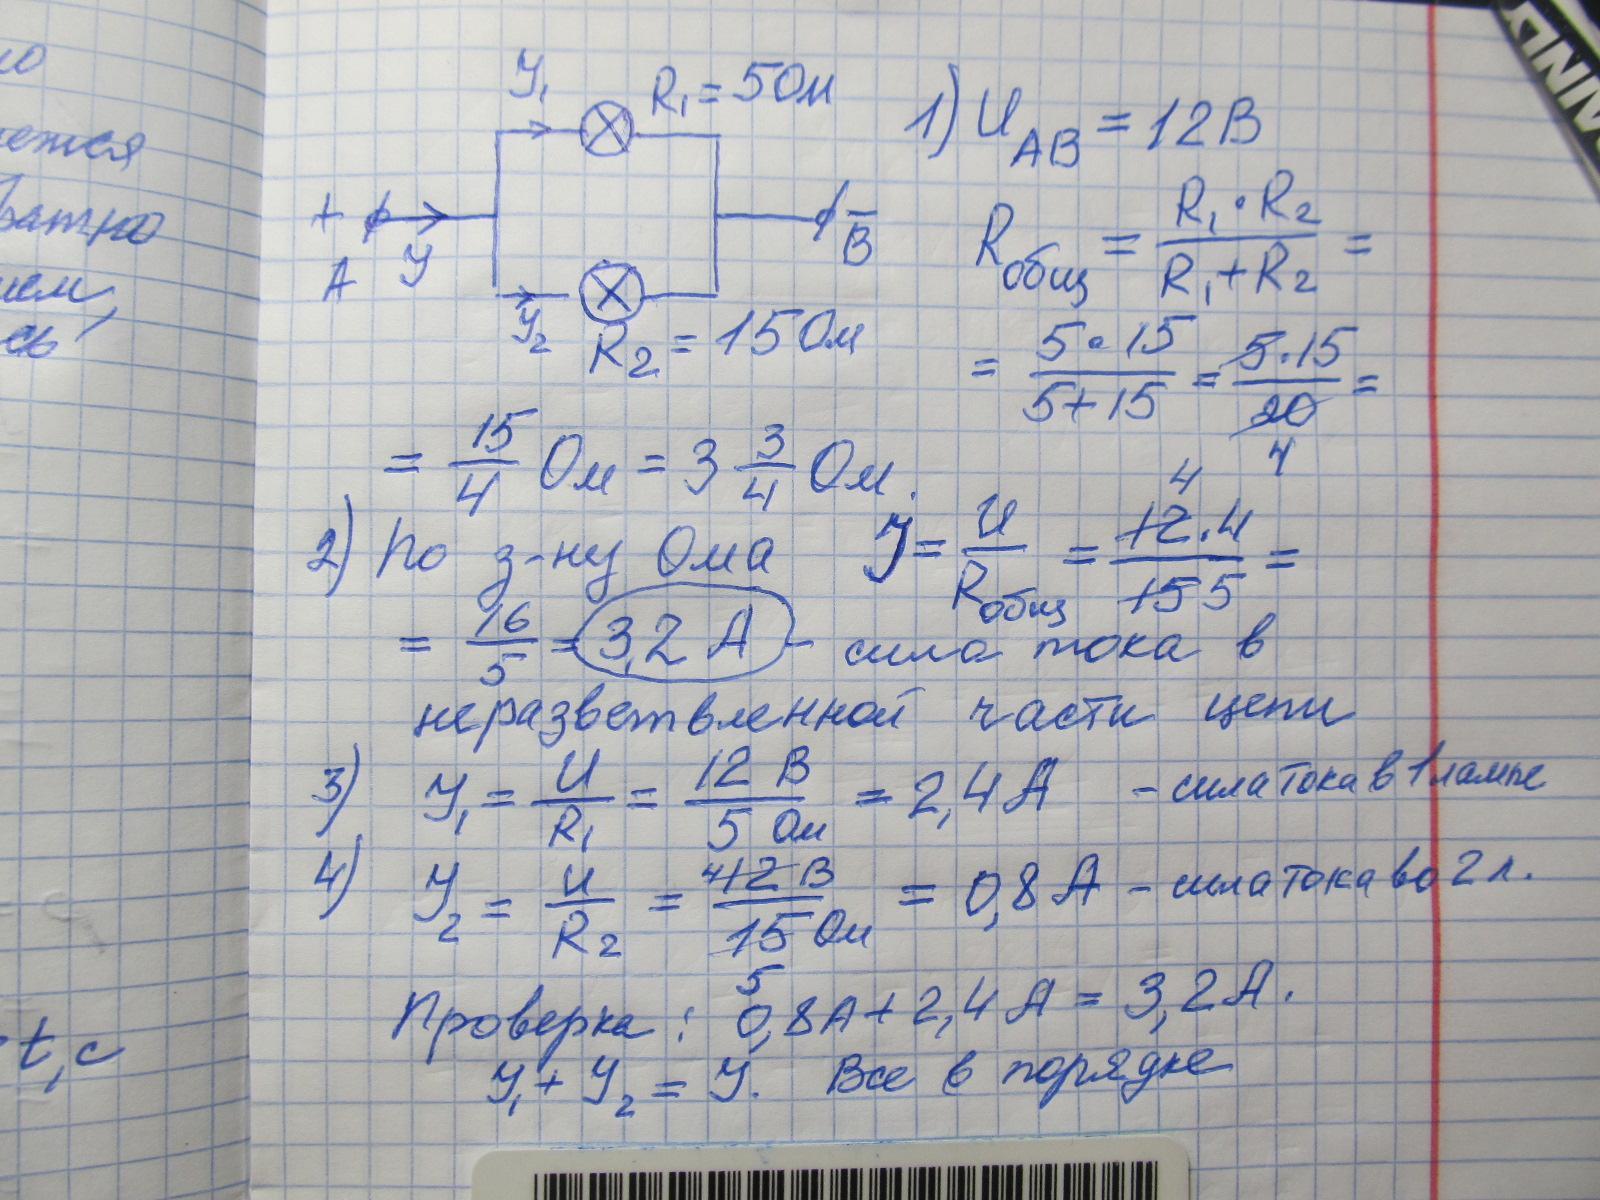 У₁ R₁ = 5 Ом
+ У
А
В
У₂
R₂ = 15 Ом
1) U_AB = 12 В
R_общ = R₁·R₂ / R₁+R₂ =
= 5·15 / 5+15 = 5·15 / 20 =
4
= 15/4 Ом = 3 3/4 Ом.
2) По з-ну Ома У = U / R_общ = 12·4 / 15 =
4
5
= 16/5 = 3,2 А - сила тока в
неразветвленной части цепи
3) У₁ = U / R₁ = 12 В / 5 Ом = 2,4 А - сила тока в 1 лампе
4) У₂ = U / R₂ = 12 В / 15 Ом = 0,8 А - сила тока во 2 л.
4
5
Проверка: 0,8А + 2,4А = 3,2А.
У₁ + У₂ = У. Все в порядке
t, с